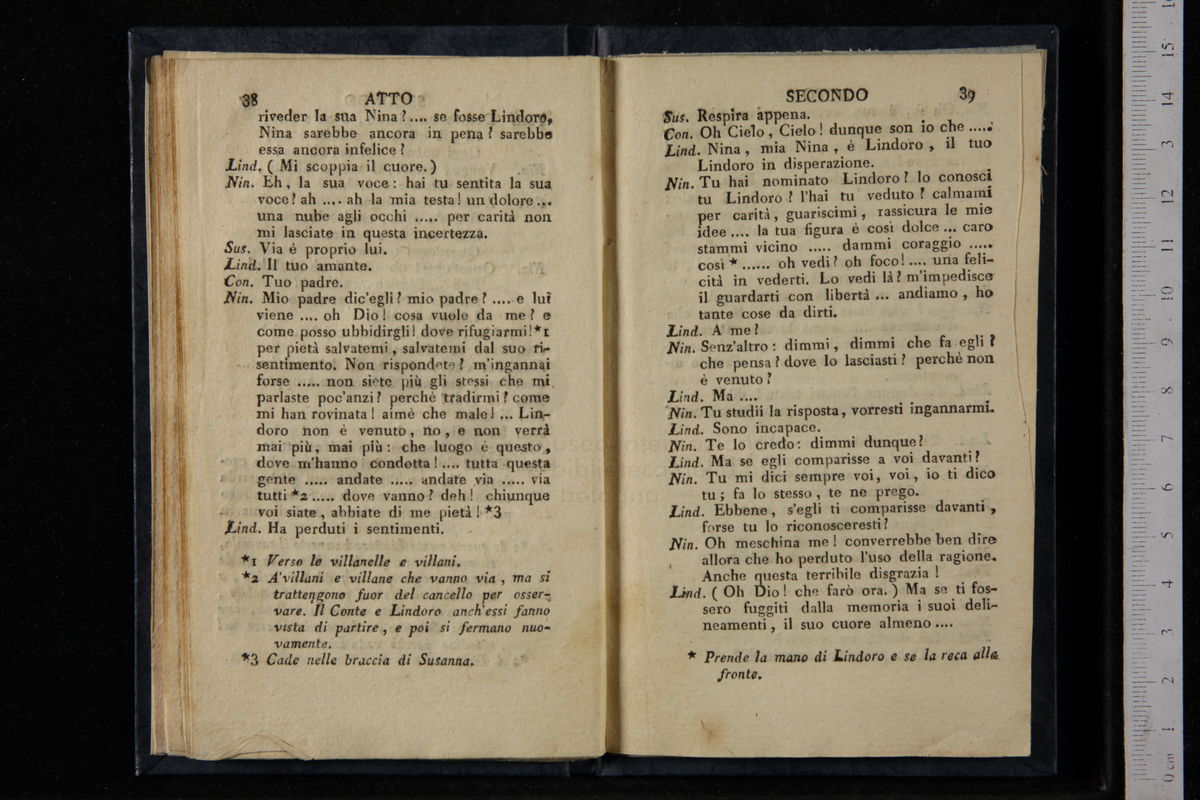 38 ATTO
riveder la sua Nina?.... se fosse Lindoro,
Nina sarebbe ancora in pena? sarebbe
essa ancora infelice?
Lind. ( Mi scoppia il cuore.)
Nin. Eh, la sua voce: hai tu sentita la sua
voce? ah .... ah la mia testa! un dolore...
una nube agli occhi ..... per carità non
mi lasciate in questa incertezza.
Sus. Via è proprio lui.
Lind. Il tuo amante.
Con. Tuo padre.
Nin. Mio padre dic'egli? mio padre? .... e lui
viene .... oh Dio! cosa vuole da me? e
come posso ubbidirgli! dove rifugiarmi!*1
per pietà salvatemi, salvatemi dal suo ri-
sentimento. Non rispondete? m'ingannai
forse ..... non siete più gli stessi che mi
parlaste poc'anzi? perchè tradirmi? come
mi han rovinata! aimè che male! ... Lin-
doro non è venuto, no, e non verrà
mai più, mai più: che luogo è questo,
dove m'hanno condotta!.... tutta questa
gente ..... andate ..... andate via ..... via
tutti *2 ..... dove vanno? deh! chiunque
voi siate, abbiate di me pietà! *3
Lind. Ha perduti i sentimenti.
*1 Verso le villanelle e villani.
*2 A'villani e villane che vanno via, ma si
trattengono fuor del cancello per osser-
vare. Il Conte e Lindoro anch'essi fanno
vista di partire, e poi si fermano nuo-
vamente.
*3 Cade nelle braccia di Susanna.
SECONDO 39
Sus. Respira appena.
Con. Oh Cielo, Cielo! dunque son io che .....
Lind. Nina, mia Nina, è Lindoro, il tuo
Lindoro in disperazione.
Nin. Tu hai nominato Lindoro? lo conosci
tu Lindoro? l'hai tu veduto? calmami
per carità, guariscimi, rassicura le mie
idee .... la tua figura è così dolce ... caro
stammi vicino ..... dammi coraggio .....
così * ...... oh vedi? oh foco!.... una feli-
cità in vederti. Lo vedi là? m'impedisce
il guardarti con libertà ... andiamo, ho
tante cose da dirti.
Lind. A me?
Nin. Senz'altro: dimmi, dimmi che fa egli?
che pensa? dove lo lasciasti? perchè non
è venuto?
Lind. Ma ....
Nin. Tu studii la risposta, vorresti ingannarmi.
Lind. Sono incapace.
Nin. Te lo credo: dimmi dunque?
Lind. Ma se egli comparisse a voi davanti?
Nin. Tu mi dici sempre voi, voi, io ti dico
tu; fa lo stesso, te ne prego.
Lind. Ebbene, s'egli ti comparisse davanti,
forse tu lo riconosceresti?
Nin. Oh meschina me! converrebbe ben dire
allora che ho perduto l'uso della ragione.
Anche questa terribile disgrazia!
Lind. ( Oh Dio! che farò ora.) Ma se ti fos-
sero fuggiti dalla memoria i suoi deli-
neamenti, il suo cuore almeno ....
* Prende la mano di Lindoro e se la reca alla
fronte.
0 cm 1 2 3 4 5 6 7 8 9 10 11 12 3 14 15